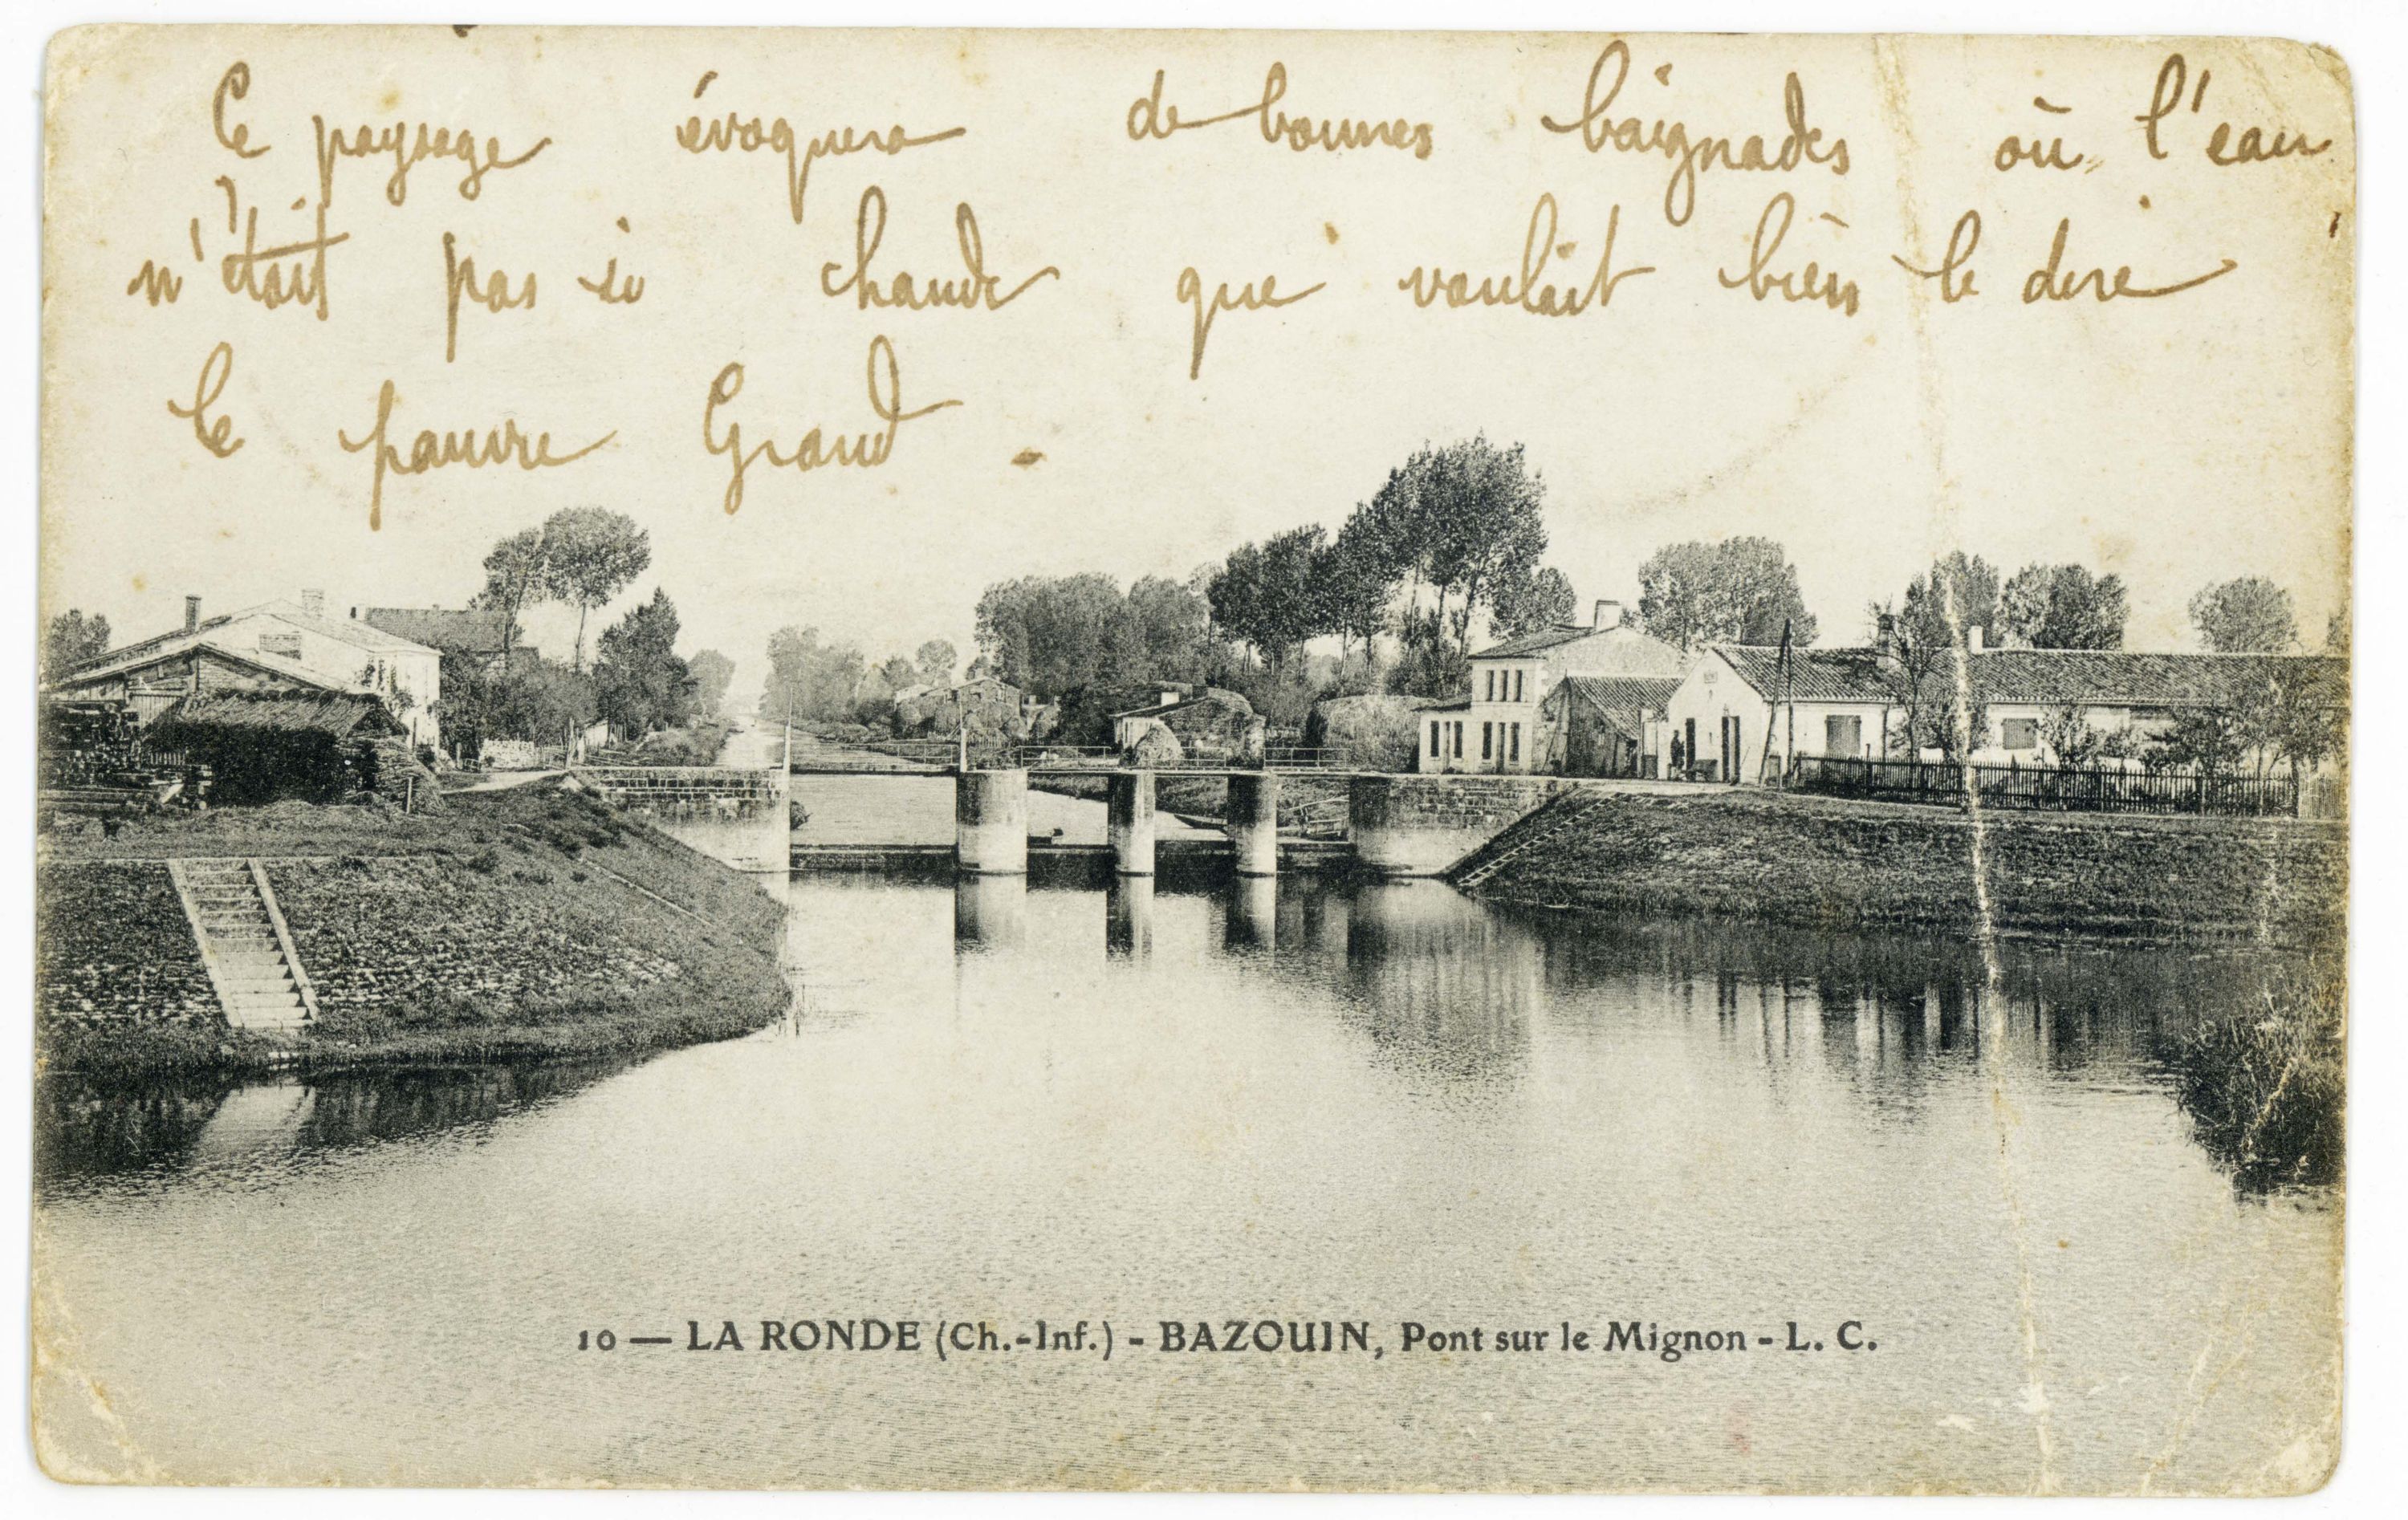 Ce paysage évoquera de bonnes baignades où l'eau
n'était pas si chaude que voulait bien le dire
le pauvre Grand.
10 — LA RONDE (Ch.-Inf.) - BAZOUIN, Pont sur le Mignon - L. C.